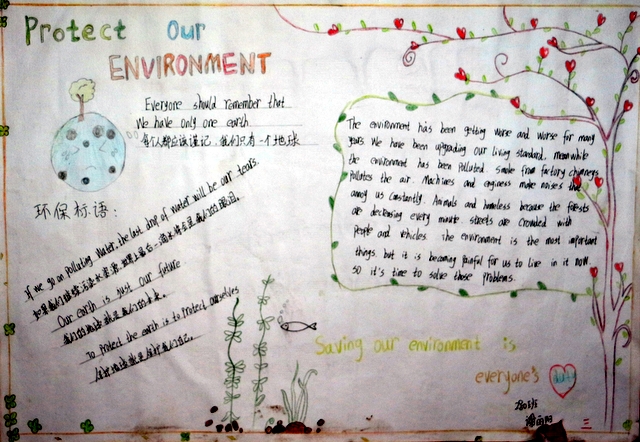 Protect Our
ENVIRONMENT
Everyone should remember that
We have only one earth
每个人都应该谨记，我们只有一个地球
环保标语：
If we go on polluting water, the last drop of water will be our tears.
Our earth is just our future
To protect the earth is to protect ourselves
The environment has been getting worse and worse for many
years We have been upgrading our living standard, meanwhile
the environment has been polluted. Smoke from factory chimneys
pollutes the air. Machines and engines make noises that
annoy us constantly. Animals and homeless because the forests
are decreasing every minute streets are crowded with
people and vehicles. The environment is the most important
things. but it is becoming painful for us to live in it now.
so it's time to solve those problems.
Saving our environment is
everyone's duty
三